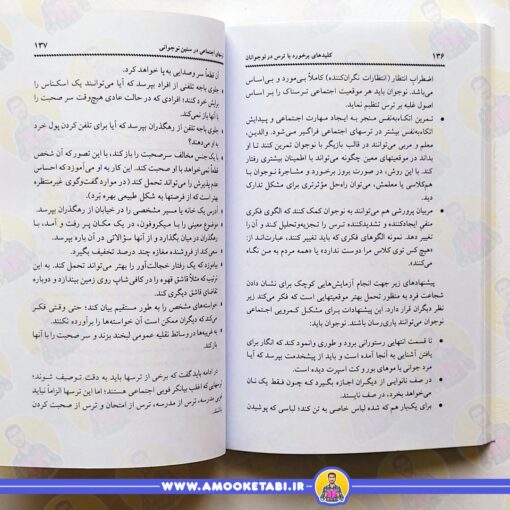 ۱۳۶
کلیدهای برخورد با ترس در نوجوانان
اضطراب انتظار (انتظارات نگران‌کننده) کاملاً بی‌مورد و بی‌اساس
می‌باشند. نوجوان باید هر موقعیت اجتماعی ترسناک را بر اساس
اصول غلبه بر ترس تنظیم نماید.
• تمرین اتکاءبه‌نفس منجر به ایجاد مهارت اجتماعی و پیدایش
اتکاءبه‌نفس بیشتر در ترسهای اجتماعی فراگیر می‌شود. والدین،
معلم و مربی می‌توانند در قالب بازیگر با نوجوان تمرین کنند تا او
بداند در موقعیتهای معین چگونه می‌تواند با اطمینان بیشتری رفتار
کند. با این روش، در صورت بروز برخورد و مشاجرهٔ نوجوان با
هم‌کلاس یا معلمش، می‌توان راه‌حل مؤثرتری برای مشکل تدارک
دید.
• مربیان پرورشی هم می‌توانند به نوجوان کمک کنند که الگوی فکری
منفیِ ایجادکننده و تشدیدکننده، ترس را تجزیه‌وتحلیل کند و آن را
تغییر دهد. نمونه الگوهای فکری که باید تغییر کنند، عبارت‌اند از:
«هیچ کس توی کلاس مرا دوست ندارد» یا «همه مردم به من نگاه
می‌کنند».
پیشنهادهای زیر جهت انجام آزمایش‌هایی کوچک برای نشان دادن
شجاعت فرد به منظور تحمل بهتر موقعیتهایی است که فکر می‌کند زیر
نظر دیگران قرار دارد. این پیشنهادات برای مشکل کمرویی اجتماعی
نوجوان می‌توانند یاری‌رسان باشند. نوجوان باید:
• تا قسمت انتهایی رستورانی برود و طوری وانمود کند که انگار برای
یافتن آشنایی به آنجا آمده است و باید از پیشخدمت بپرسد که آیا
مرد جوانی با موهای بور و کت اسپرت دیده است.
• در صف نانوایی از دیگران اجازه بگیرد که چون فقط یک نان
می‌خواهد بخرد، در صف نایستد.
• برای یک‌بار هم که شده لباس خاصی به تن کند؛ لباسی که پوشیدن
ـهای اجتماعی در سنین نوجوانی
۱۳۷
آن قطعاً سر وصدایی به پا خواهد کرد.
جلوی باجه تلفنی از افراد بپرسد که آیا می‌توانند یک اسکناس را
برایش خرد کنند؛ افرادی که در حالت عادی هیچ‌وقت سر صحبت را
با آنها باز نمی‌کند.
جلوی باجه تلفن از رهگذران بپرسد که آیا برای تلفن کردن پول خرد
به او می‌دهند؟
با یک جنس مخالف سرصحبت را باز کند، با این تصور که آن شخص
قطعاً نمی‌خواهد با او صحبت کند. این کار به او می‌آموزد که احساس
عدم پذیرش را می‌تواند تحمل کند (در موارد گفت‌وگوی غیرمنتظره
بهتر است که از فرصتها به شکل طبیعی بهره بُرد).
آدرس یک خانه یا مسیر مشخصی را در خیابان از رهگذران بپرسد.
موضوع معینی را با میکروفون، در یک مکان پر رفت و آمد، با
رهگذران در میان بگذارد و از آنها سؤالاتی در آن باره بپرسد.
سعی کند از فروشنده مغازه چند درصد تخفیف بگیرد.
بیاموزد که یک رفتار خجالت‌آور را بهتر می‌تواند تحمل کند. به این
ترتیب که مثلاً قاشق قهوه را در کافی شاپ روی زمین بیندازد و دوباره
تقاضای قاشق دیگری کند.
خواسته‌های مشخص را به طور مستقیم بیان کند؛ حتی وقتی فکر
می‌کند که دیگران ممکن است آن خواسته‌ها را برآورده نکنند.
به غریبه‌ها در وسائط نقلیه عمومی لبخند بزند و سر صحبت را با آنها
باز کند.
در ادامه باید گفت که برخی از ترسها باید به دقت توصیف شوند؛
ترسهایی که اغلب بیانگر فوبی اجتماعی هستند؛ اما این ترسها الزاماً نباید
فوبی مدرسه، ترس از مدرسه، ترس از امتحان و ترس از صحبت کردن
باشند.
WWW.AMOOKETABI.IR